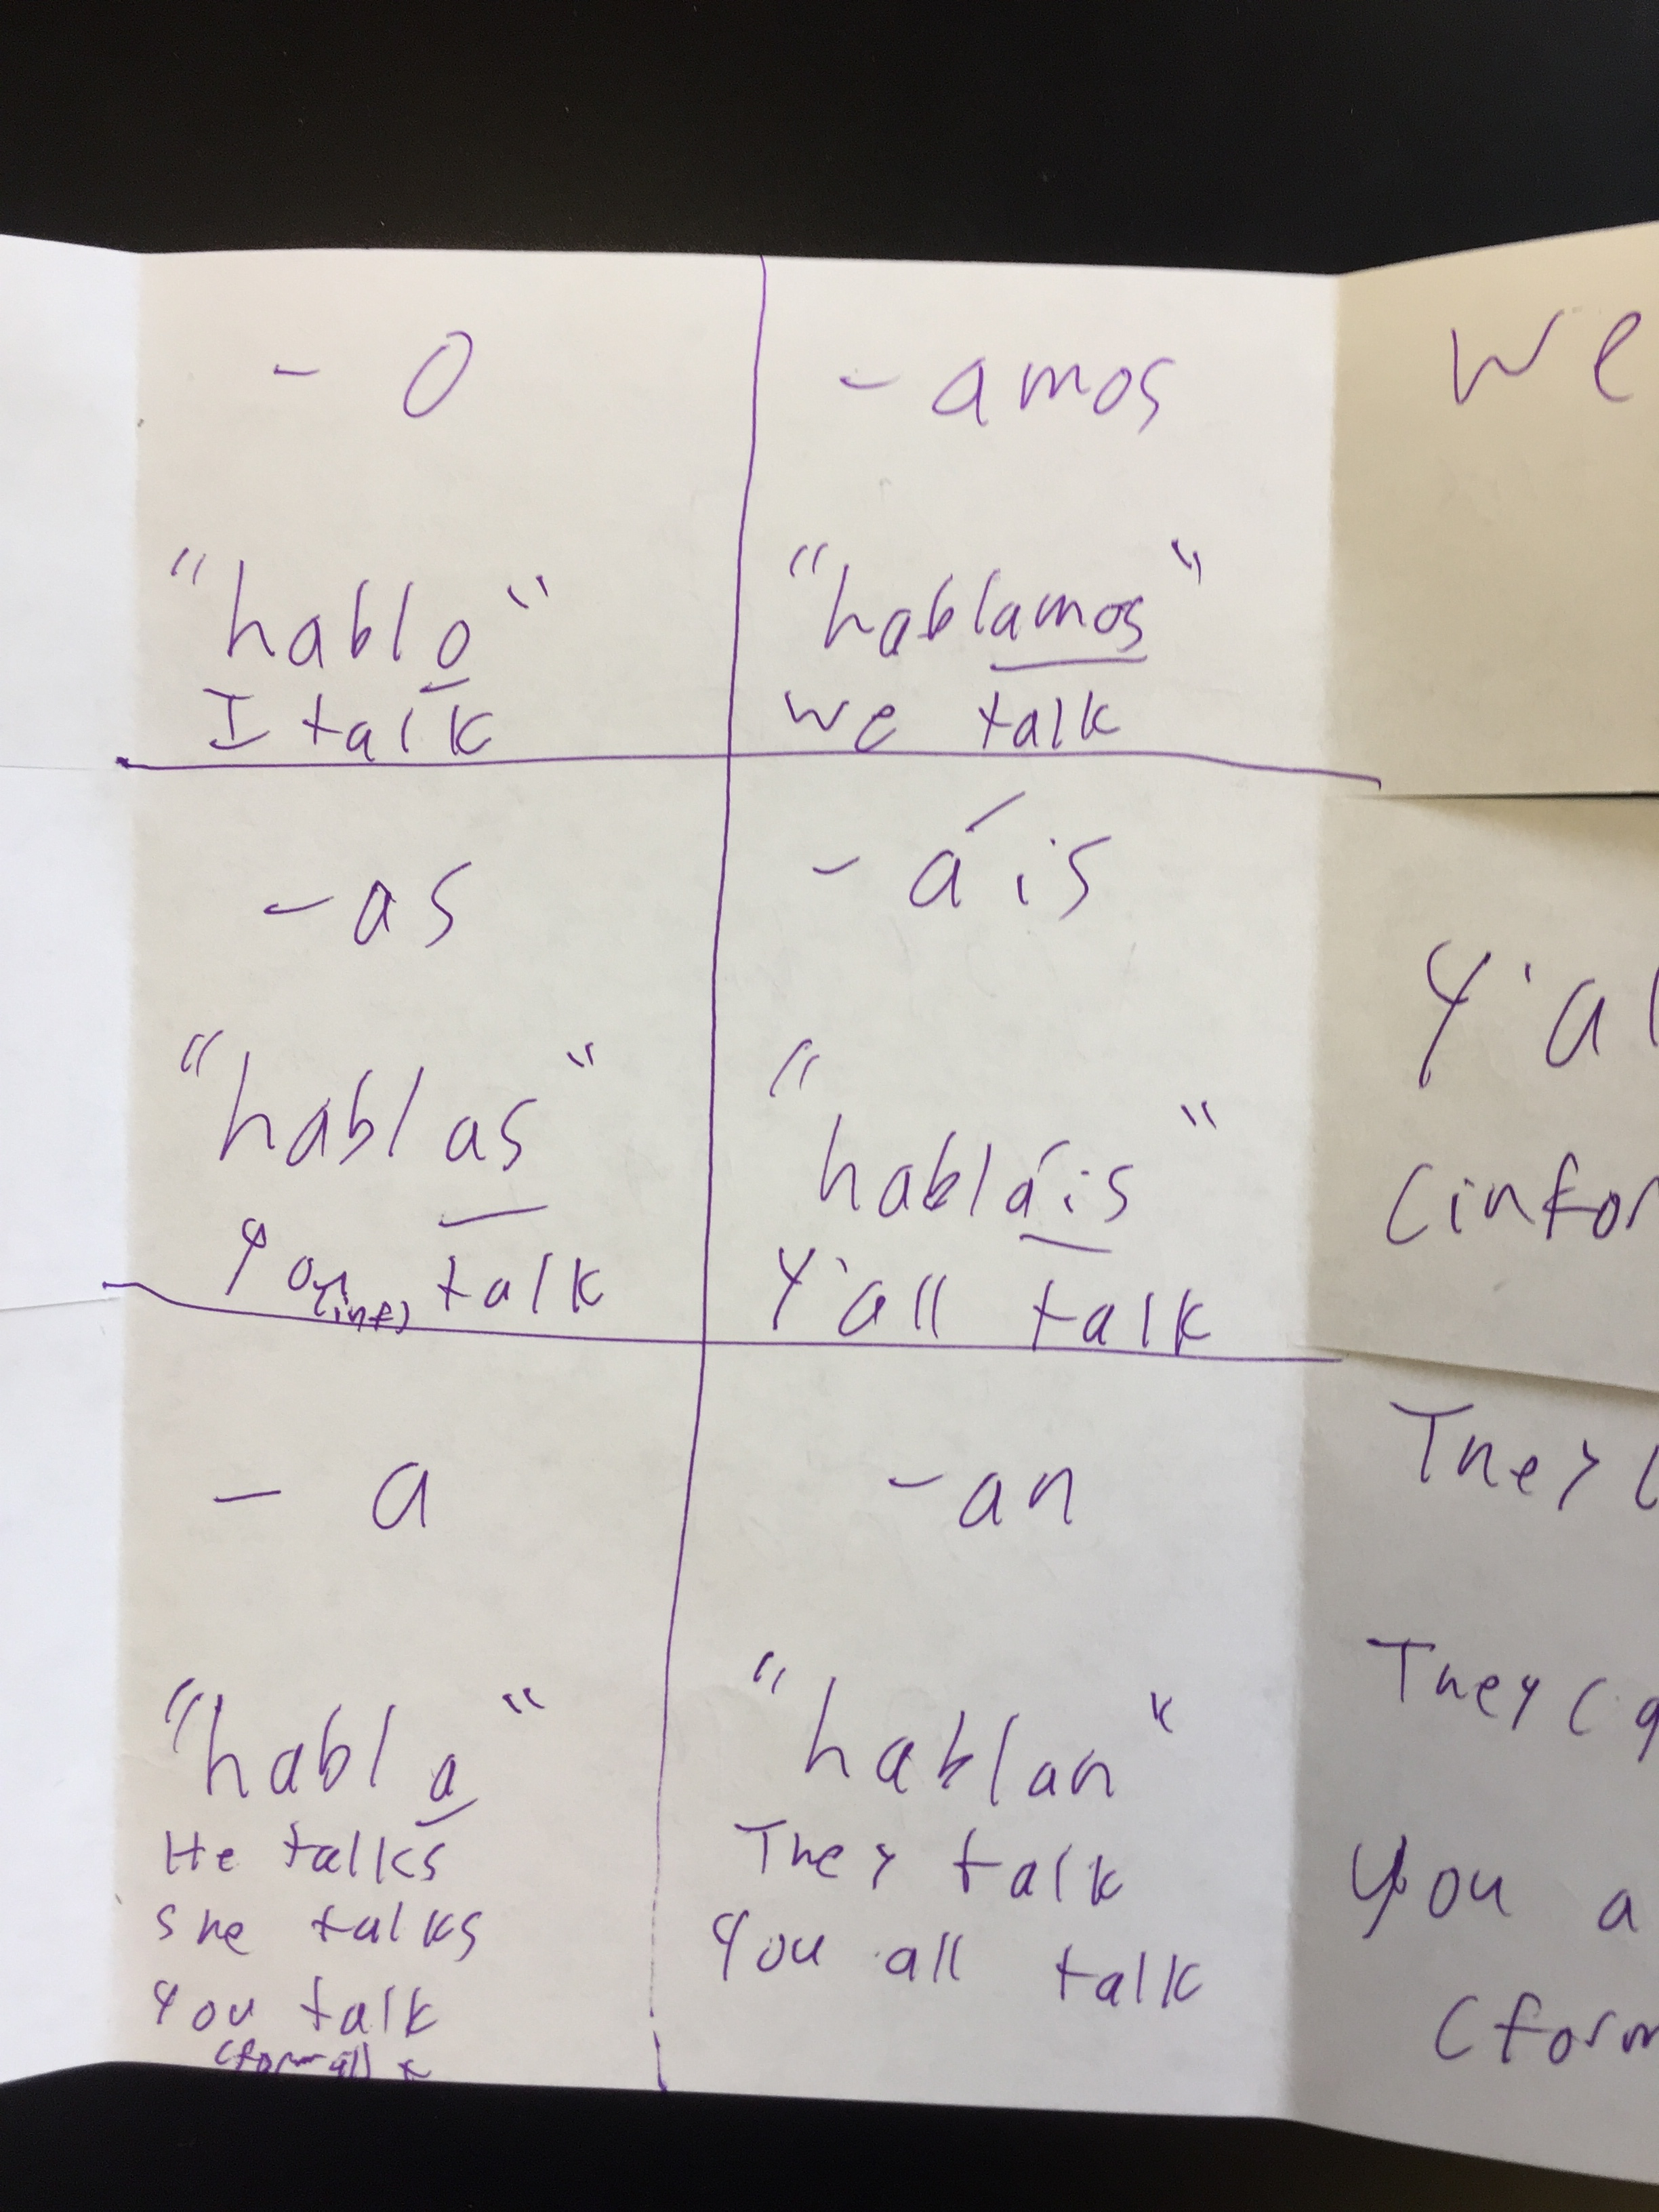 - o
"hablo"
I talk
- amos
"hablamos"
we talk
- as
"hablas"
you (inf) talk
- áis
"habláis"
Y'all talk
- a
"habla"
He talks
She talks
You talk
(formal) *
- an
"hablan"
They talk
You all talk
We
Y'al
(infor
They (
They (
You a
(form